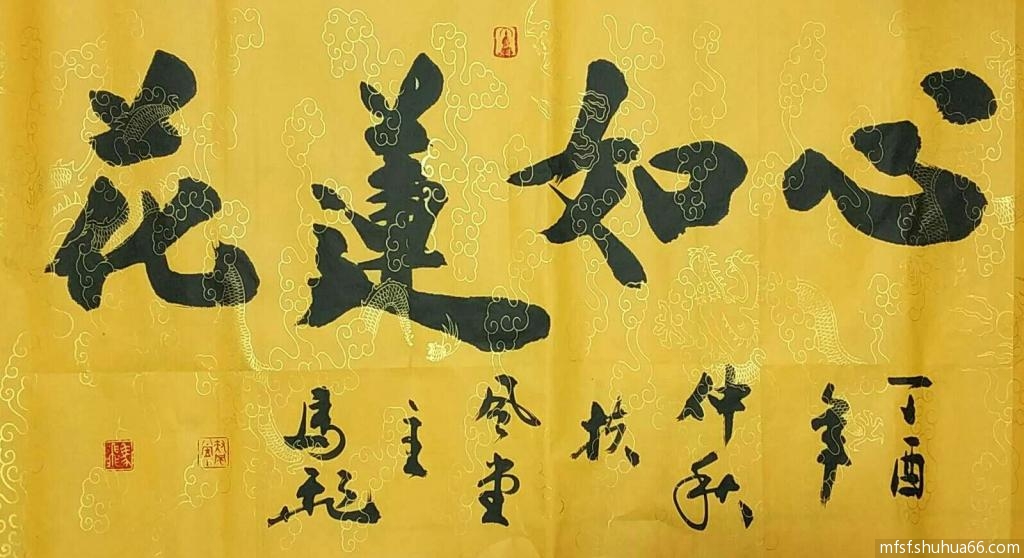 心如蓮花
丁酉
年
仲秋
扶
風堂
主
馬
mfsf.shuhua66.com